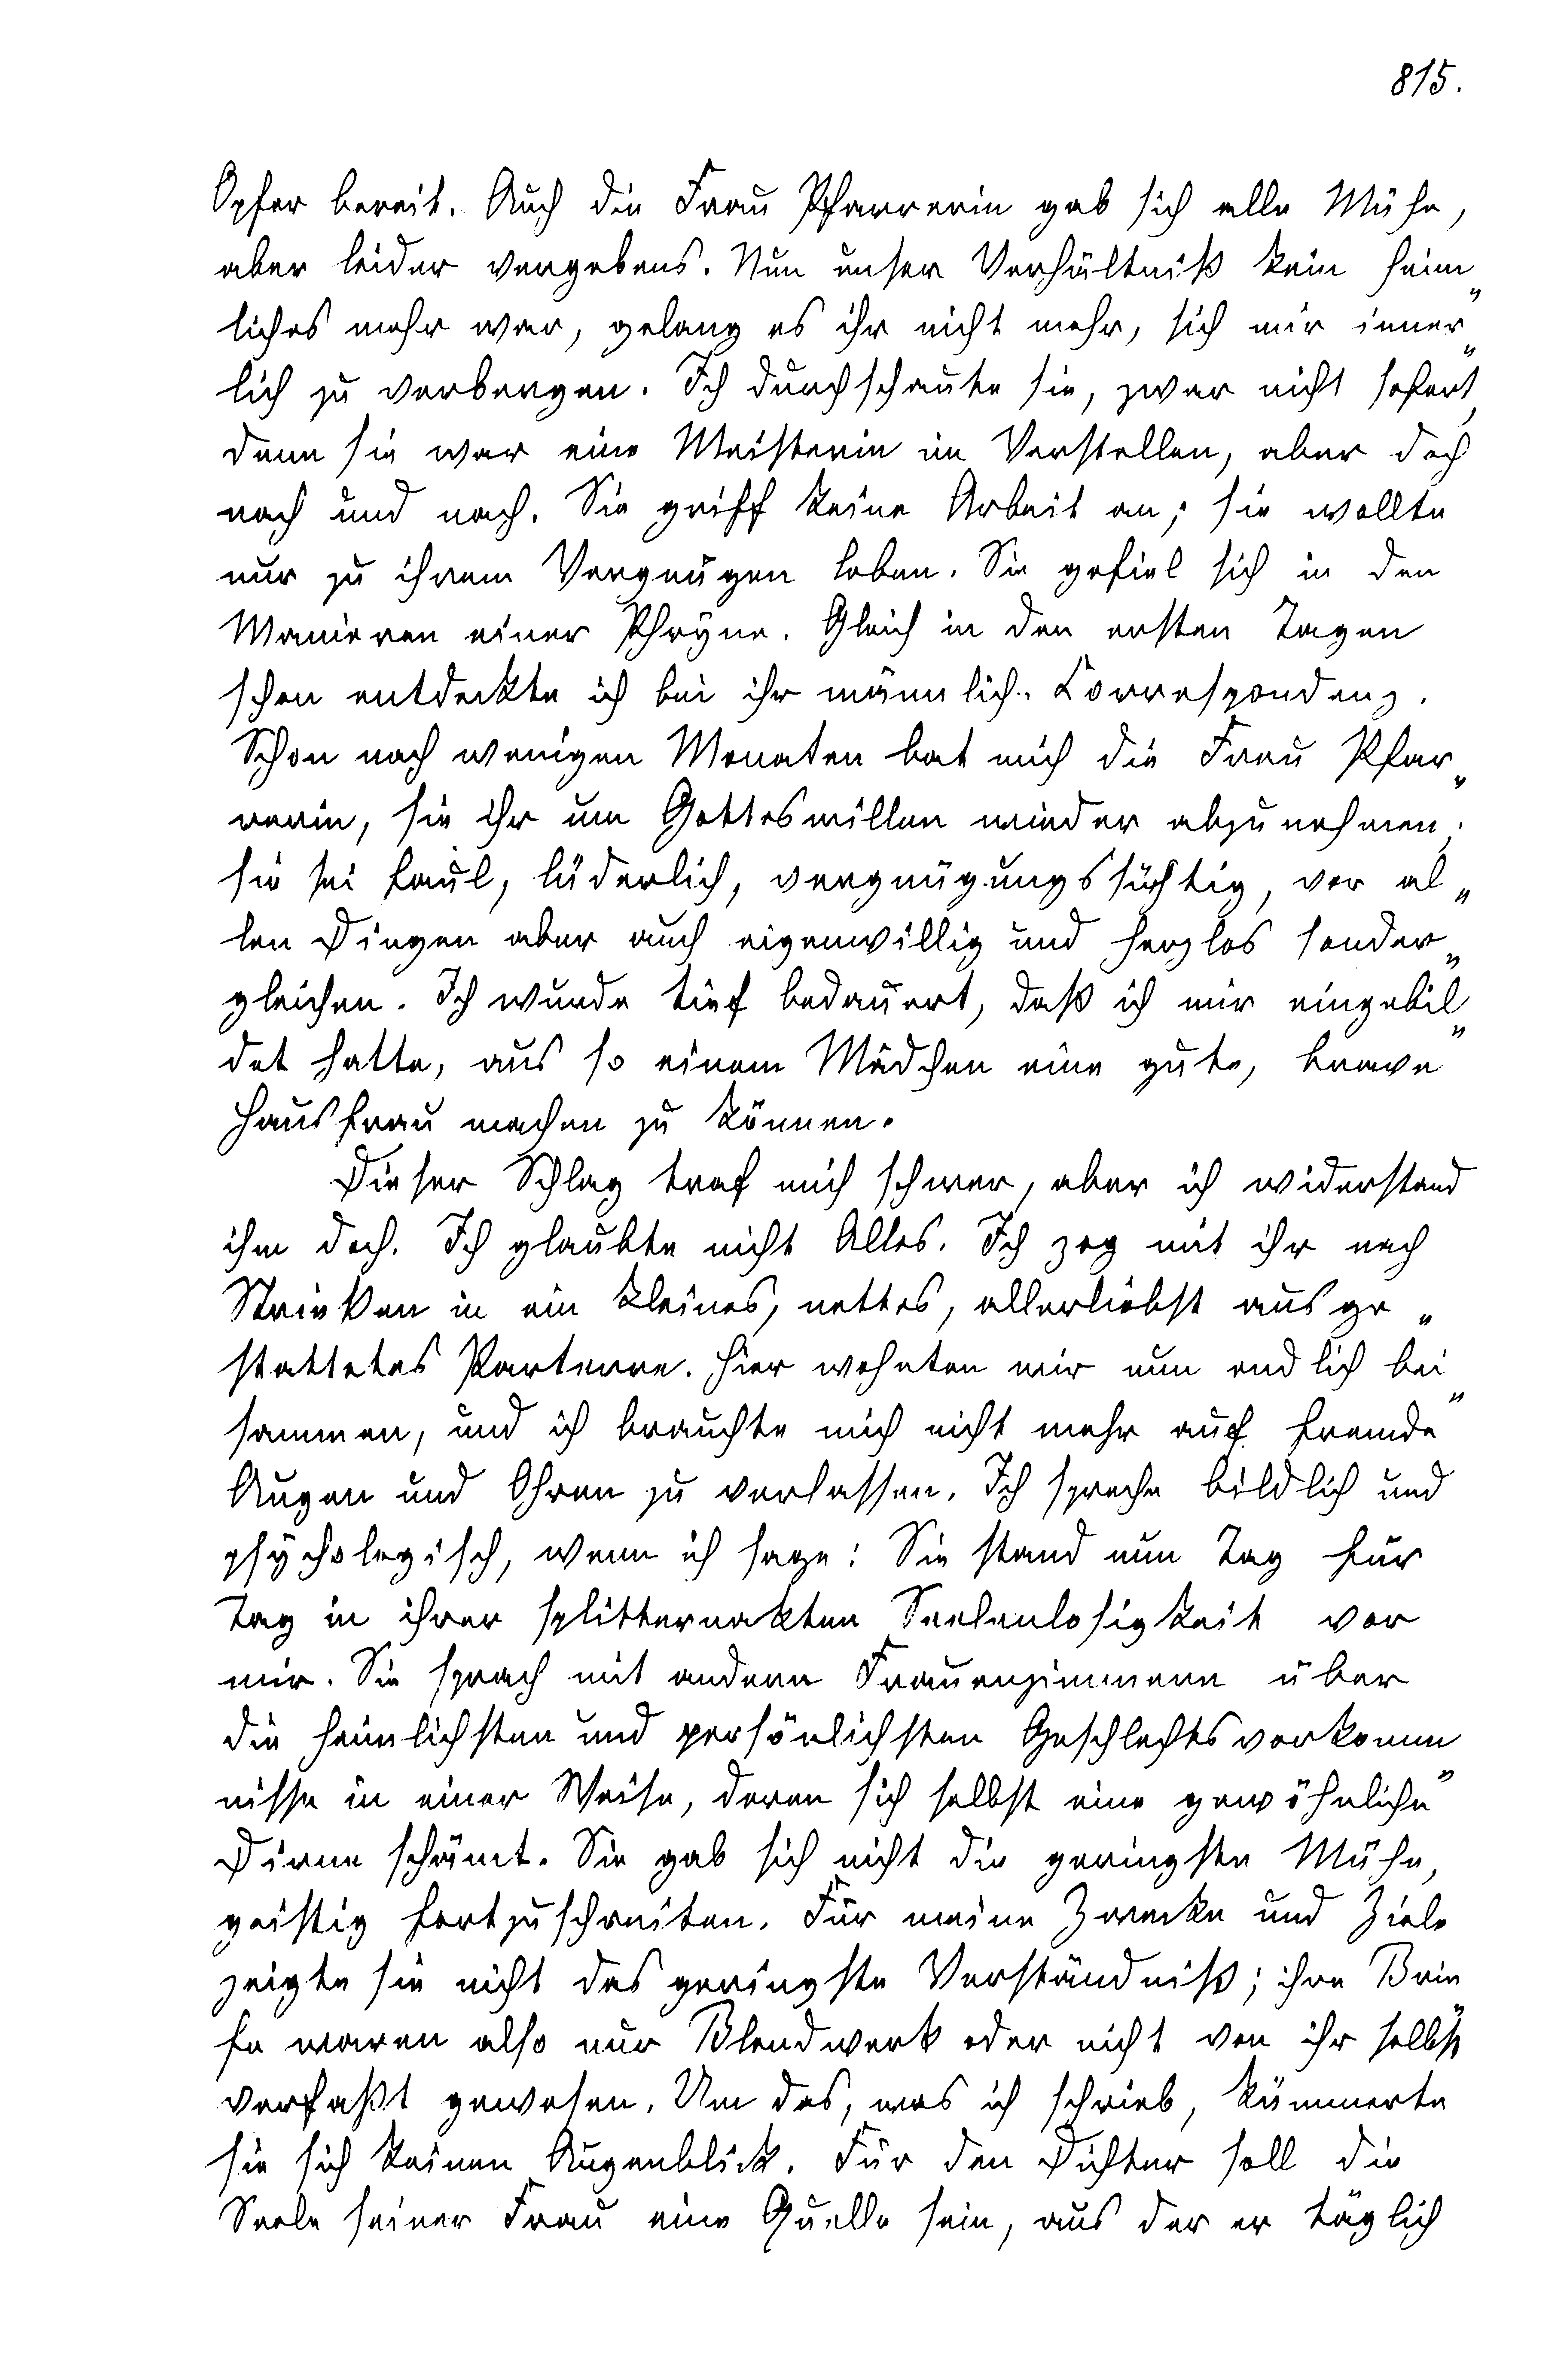 815.
Opfer bereit. Auch die Frau Pfarrerin gab sich alle Mühe,
aber leider vergebens. Nun unser Verhältniß kein heim„
liches mehr war, gelang es ihr nicht mehr, sich mir inner„
lich zu verbergen. Ich durchschaute sie, zwar nicht sofort,
denn sie war eine Meisterin im Verstellen, aber doch
nach und nach. Sie griff keine Arbeit an; sie wollte
nur zu ihrem Vergnügen leben. Sie gefiel sich in den
Manieren einer Phryne. Gleich in den ersten Tagen
schon entdeckte ich bei ihr männlich. Correspondenz.
Schon nach wenigen Monaten bat mich die Frau Pfar„
rerin, sie ihr um Gotteswillen wieder abzunehmen;
sie sei faul, lüderlich, vergnügungssüchtig, vor al„
len Dingen aber auch eigenwillig und herzlos sonder„
gleichen. Ich wurde tief bedauert, daß ich mir eingebil„
det hatte, aus so einem Mädchen eine gute, brave
Hausfrau machen zu können.
Dieser Schlag traf mich schwer, aber ich widerstand
ihm doch. Ich glaubte nicht Alles. Ich zog mit ihr nach
Strießen in ein kleines, nettes, allerliebst ausge„
stattetes Parterre. Hier wohnten wir nun endlich bei„
sammen, und ich brauchte mich nicht mehr auf fremde
Augen und Ohren zu verlassen. Ich spreche bildlich und
psychologisch, wenn ich sage: Sie stand nun Tag für
Tag in ihrer splitternakten Seelenlosigkeit vor
mir. Sie sprach mit andern Frauenzimmern über
die heimlichsten und persönlichsten Geschlechtsvorkomm„
nisse in einer Weise, deren sich selbst eine gewöhnliche
Dirne schämt. Sie gab sich nicht die geringste Mühe,
geistig fortzuschreiten. Für meine Zwecke und Ziele
zeigte sie nicht das geringste Verständniß; ihre Brie„
fe waren also nur Blendwerk oder nicht von ihr selbst
verfaßt gewesen. Um das, was ich schrieb, kümmerte
sie sich keinen Augenblick. Für den Dichter soll die
Seele seiner Frau eine Quelle sein, aus der er täglich